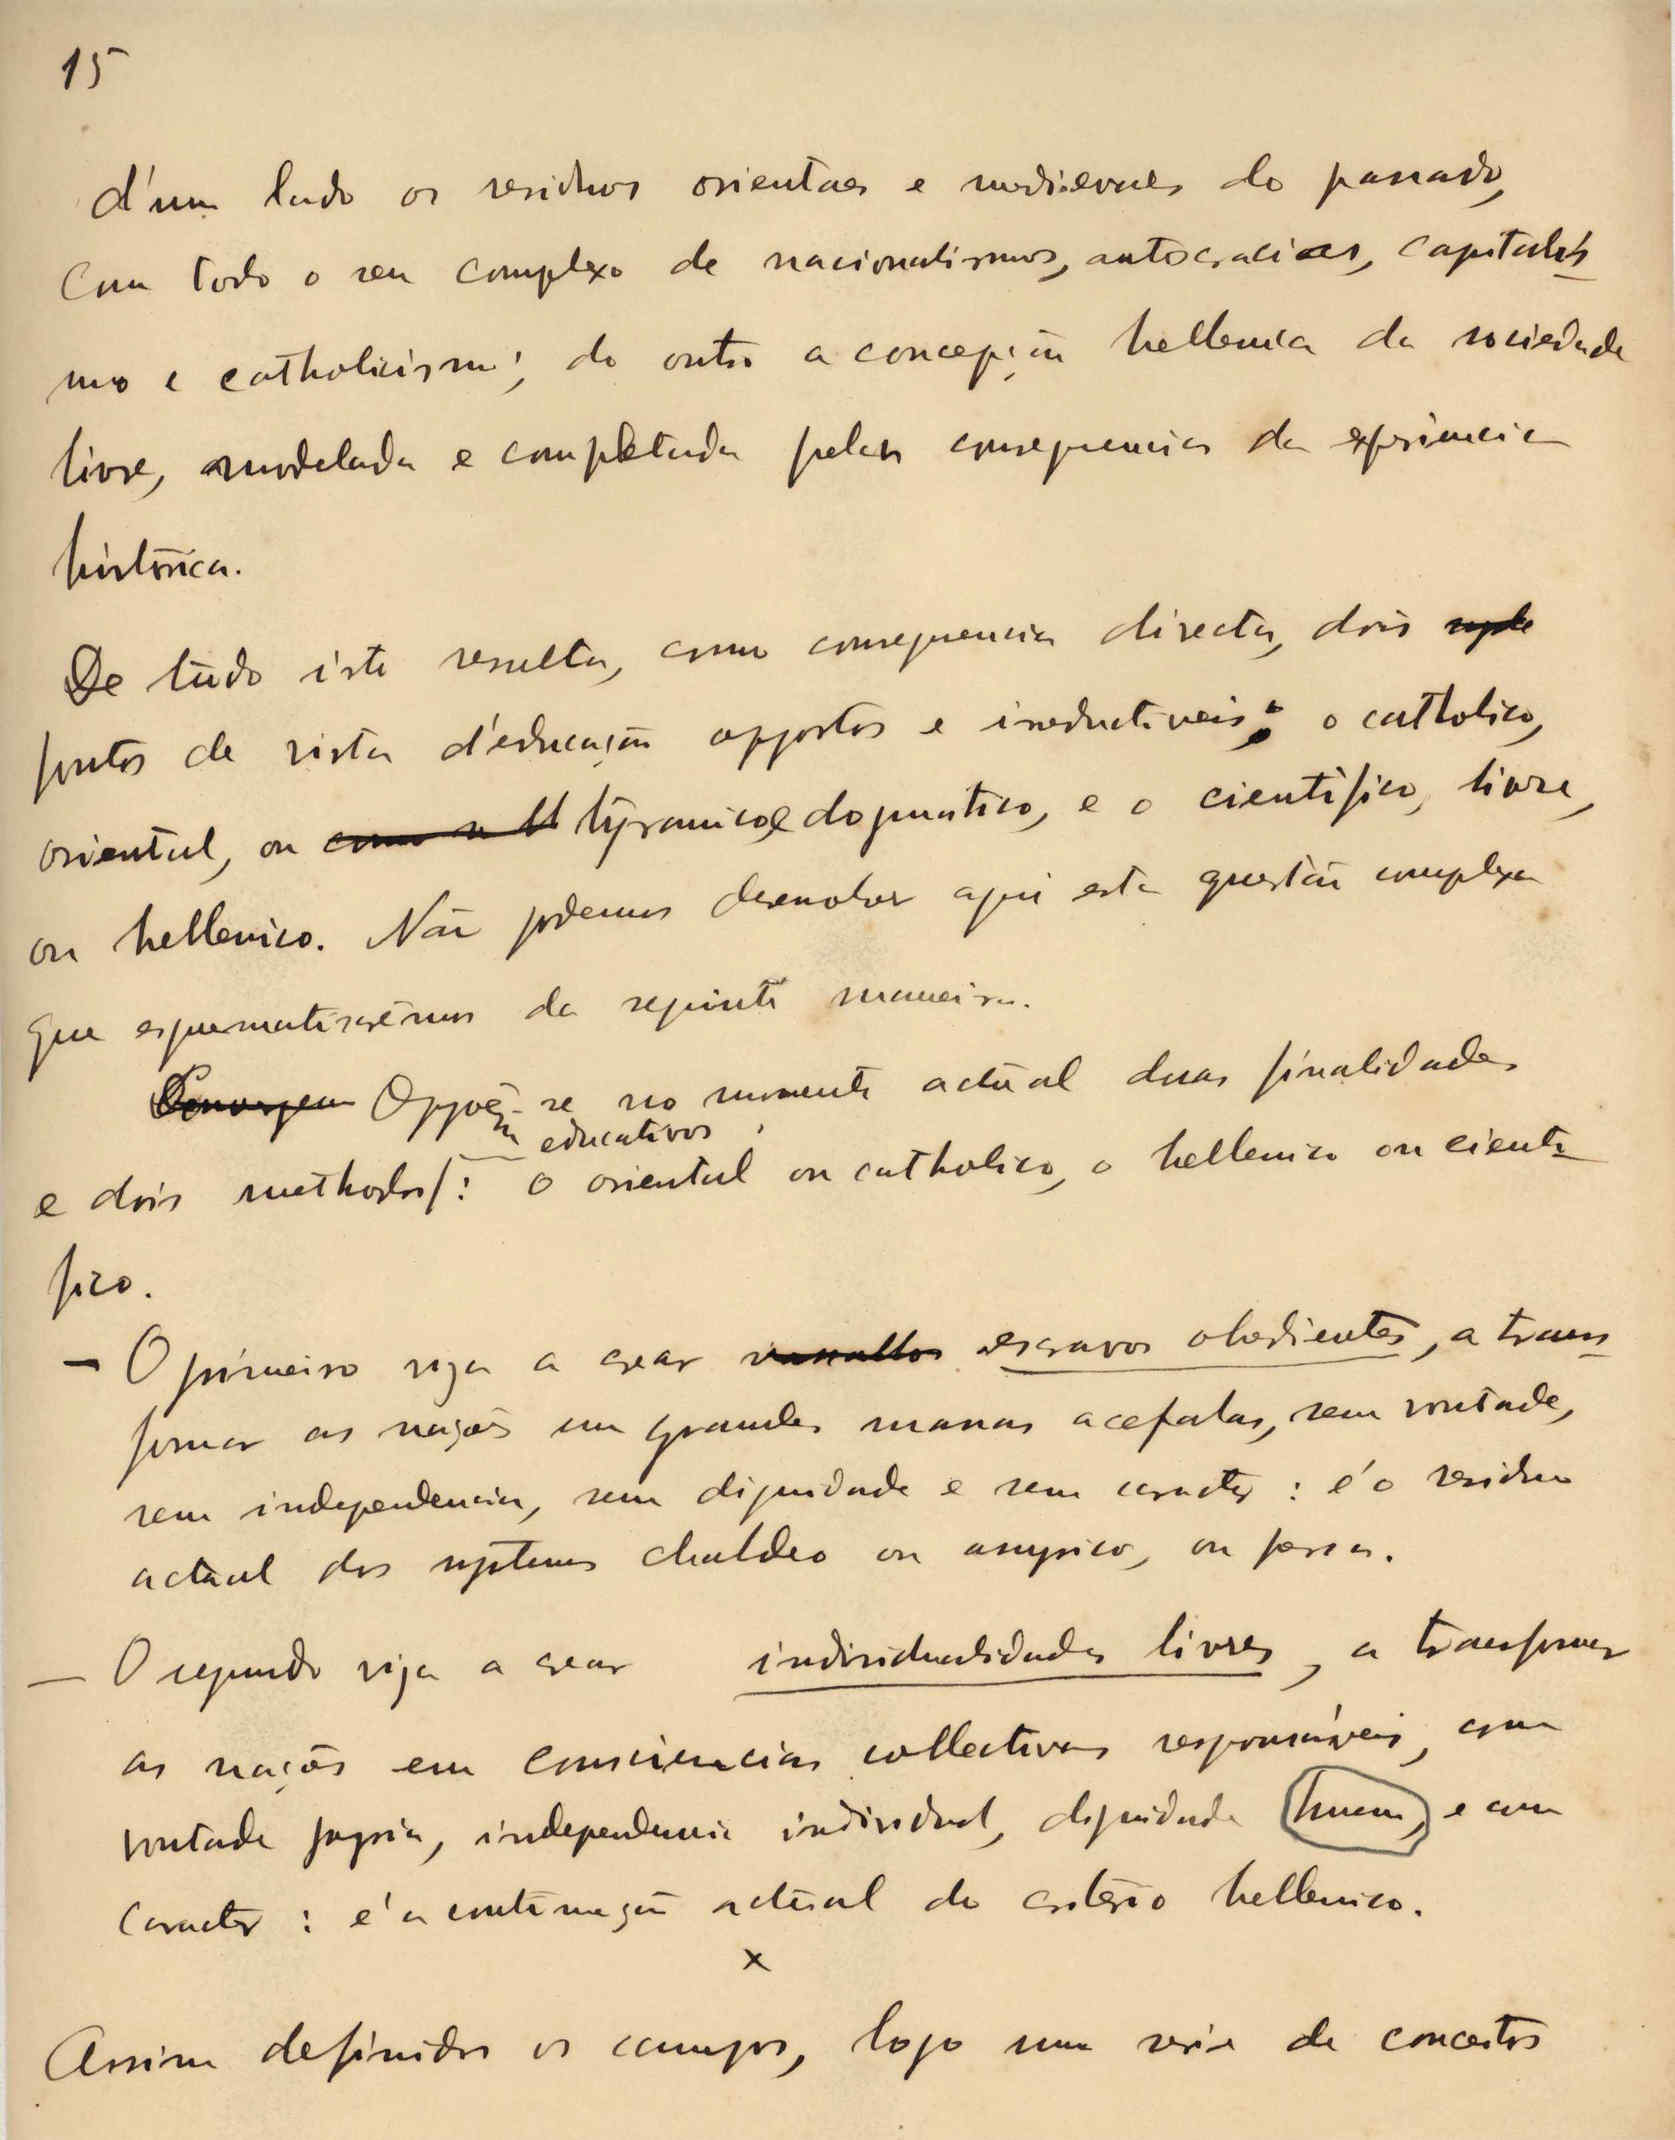 15
d'um lado os residuos orientaes e medievaes do passado,
com todo o seu complexo de nacionalismos, autocracias, capitalis
mo e catholicismo; do outro a concepção hellenica da sociedade
livre, modelada e completada pelas consequencias da experiencia
histórica.
De tudo isto resulta, como consequencia directa, dois
pontos de vista d'educação oppostos e ireductiveis: o catholico,
oriental, ou tyranico e dogmatico, e o cientifico, livre,
ou hellenico. Não podemos desenvolver aqui esta questão complexa
que esquematisarêmos da seguinte maneira.
Convergem Oppõem-se no momento actual duas finalidades
educativos
e dois methodos: o oriental ou catholico, o hellenico ou cienti
fico.
— O primeiro visa a crear vassallos escravos obedientes, a trans
formar as nações em grandes massas acefalas, sem vontade,
sem independencia, sem dignidade e sem caracter : é o residuo
actual dos systemas chaldeo ou assyrico, ou persa.
— O segundo visa a crear individualidades livres, a transformar
as nações em consciencias collectivas responsáveis, com
vontade propria, independencia individual, dignidade humana, e com
caracter : é a continuação actual do critério hellenico.
x
Assim definidos os campos, logo uma serie de conceitos